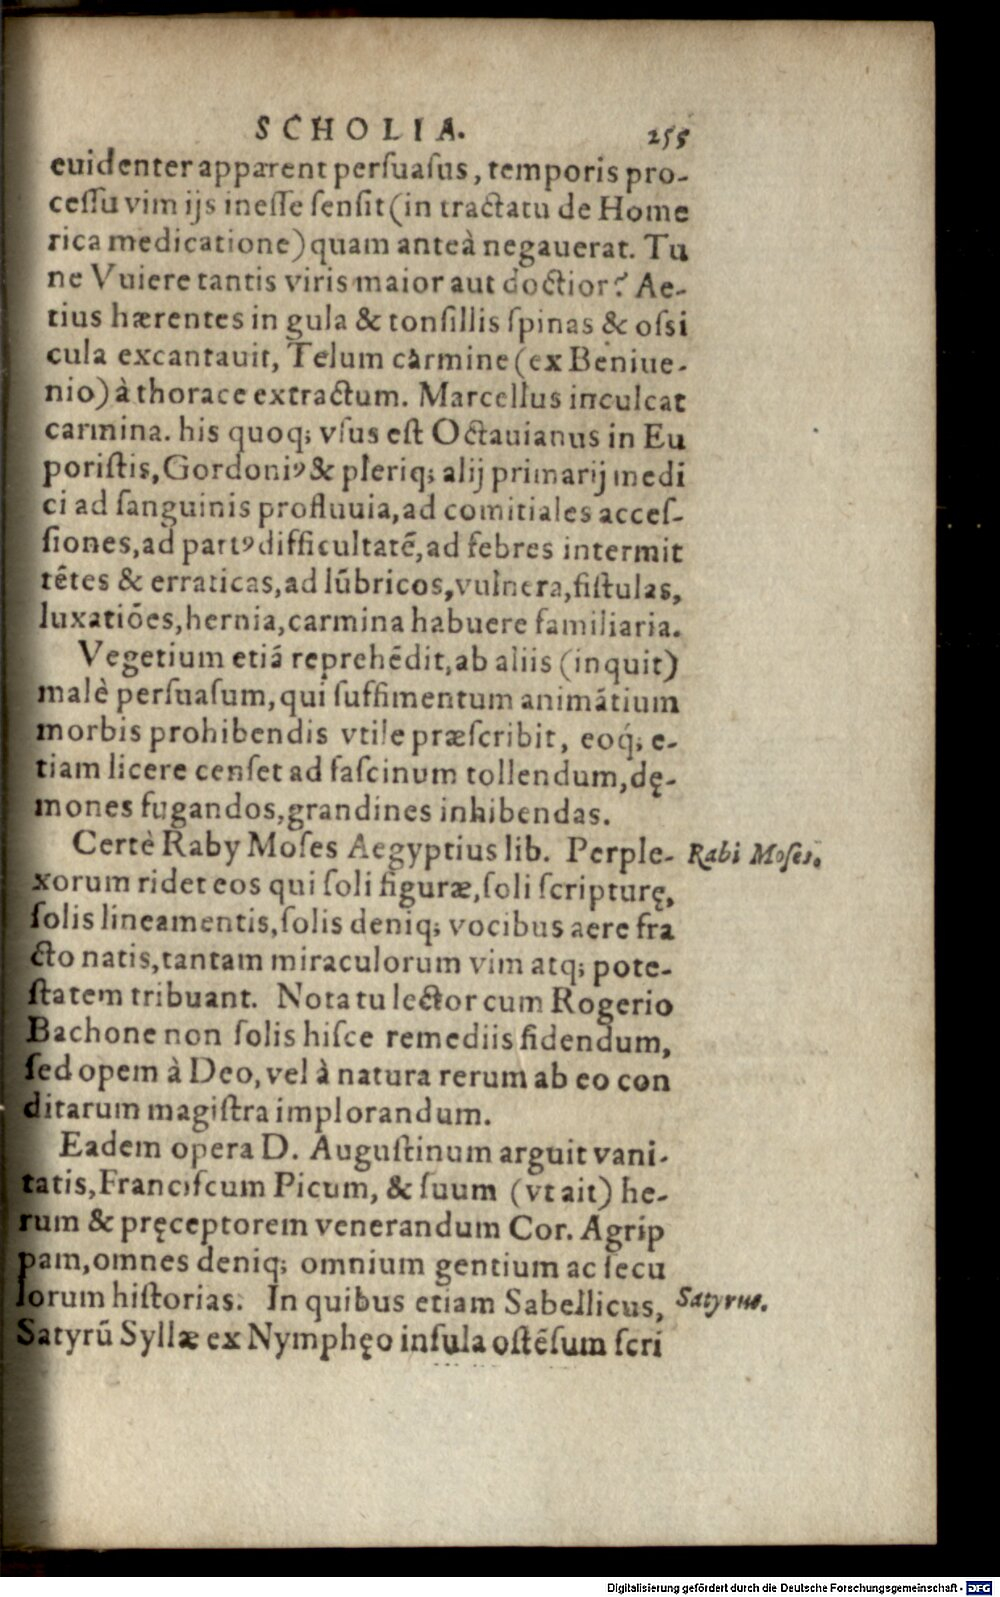 SCHOLIA. 255
euidenter apparent persuasus, temporis pro-
cessu vim ijs inesse sensit (in tractatu de Home
rica medicatione) quam anteà negauerat. Tu
ne Vuiere tantis viris maior aut doctior? Ae-
tius hærentes in gula & tonsillis spinas & ossi
cula excantauit, Telum carmine (ex Beniue-
nio) à thorace extractum. Marcellus inculcat
carmina. his quoq; vsus est Octauianus in Eu
poristis, Gordoniꝰ & pleriq; alij primarij medi
ci ad sanguinis profluuia, ad comitiales acces-
siones, ad partꝰ difficultatē, ad febres intermit
tētes & erraticas, ad lūbricos, vulnera, fistulas,
luxatiōes, hernia, carmina habuere familiaria.
Vegetium etiā reprehēdit, ab aliis (inquit)
malè persuasum, qui suffimentum animātium
morbis prohibendis vtile præscribit, eoq́; e-
tiam licere censet ad fascinum tollendum, dę-
mones fugandos, grandines inhibendas.
Certè Raby Moses Aegyptius lib. Perple- Rabi Moses.
xorum ridet eos qui soli figuræ, soli scripturę,
solis lineamentis, solis deniq; vocibus aere fra
cto natis, tantam miraculorum vim atq; pote-
statem tribuant. Nota tu lector cum Rogerio
Bachone non solis hisce remediis fidendum,
sed opem à Deo, vel à natura rerum ab eo con
ditarum magistra implorandum.
Eadem opera D. Augustinum arguit vani-
tatis, Franciscum Picum, & suum (vt ait) he-
rum & pręceptorem venerandum Cor. Agrip
pam, omnes deniq; omnium gentium ac secu
lorum historias. In quibus etiam Sabellicus, Satyrus.
Satyrū Syllæ ex Nymphęo insula ostēsum scri
Digitalisierung gefördert durch die Deutsche Forschungsgemeinschaft - DFG